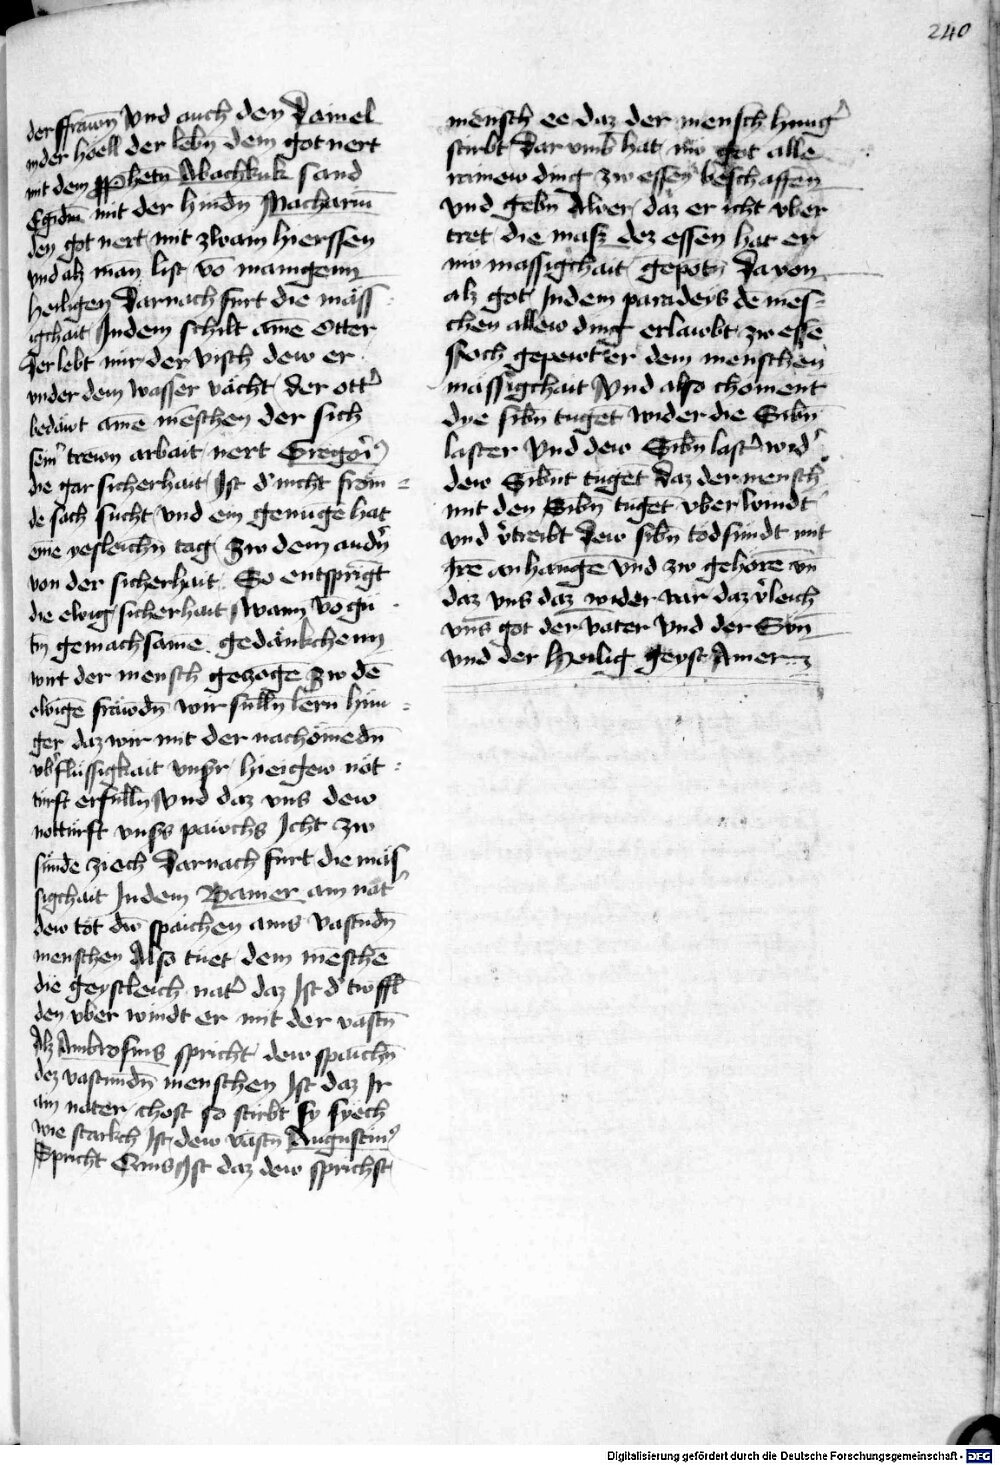 240
der ffrawn Vnd auch den Daniel
inder hoell der lebn dem got nert
mit dem pphetn Abachkuk sand
Egidiu mit der hindn Machariu
den got nert mit zwain hierssen
vnd alz man list vō manigenn
heiligen Darnach furt die mäss
igchait Indem schilt ainē Otter
der lebt nür der visch dew er
vnder dem wasser vächt der ott'
bedäwt ainē mēschen der sich
sein' trewn arbait nert Gregori9
die gar sicherhait Ist d' nicht frōm
de sach sucht vnd ein genūge hat
eine tag zw dem andn
von der sicherhait So entsprigt
die ewig sicherhait wann vō gu
tn gemachsame gedänkchenn
wirt der mensch gezogē zw dē
ewigē fräwdn wir sülln lern hun
ger daz wir mit der nachömēdn
vb'flüssigkait vnsr hieigew nöt
turft erfulln Vnd daz vns dew
notturft vnss pawchs Icht zw
sünde ziech Darnach furt die mäs
sigchait Indem Baner ain nat'
dew töt dw spaichen ains vastndn
menschen Also tuet dem mēschē
die geystleich nat' daz Ist d' twffl
den vber windt er mit der vastn
Alz Ambrosius spricht dew spaichn
dez vastundn menschen Ist daz Ir
ain nater chost so stirbt sy syech
wie starkch Ist dew vastn Augustin9
Spricht Ist daz dew sprichst
mensch ee daz der mensch hung'
stirbt Dar vmb hat nw got alle
rainew ding zw essen beschaffen
vnd gebn Aber daz er icht vber
tret die mass dez essen hat er
nw massigchait gepotn Da von
alz got Indem paradeys de mes
chen allew ding erlawbt zw essē
Noch gepewt er dem menschen
mässigchait Vnd also choment
dye sibn tuget wider die Sibn
laster Vnd dew Sibn last' wid'
dew Sibnt tuget Daz der mensch
mit den Sibn tuget vberwindt
vnd v'treibt dew sibn todsündt mit
Ire anhangē vnd zw gehorē vn
daz vns daz wider var daz v'leich
vns got der vater Vnd der Sun
vnd der Heilig geyst Amen
Digitalisierung gefördert durch die Deutsche Forschungsgemeinschaft - DFG